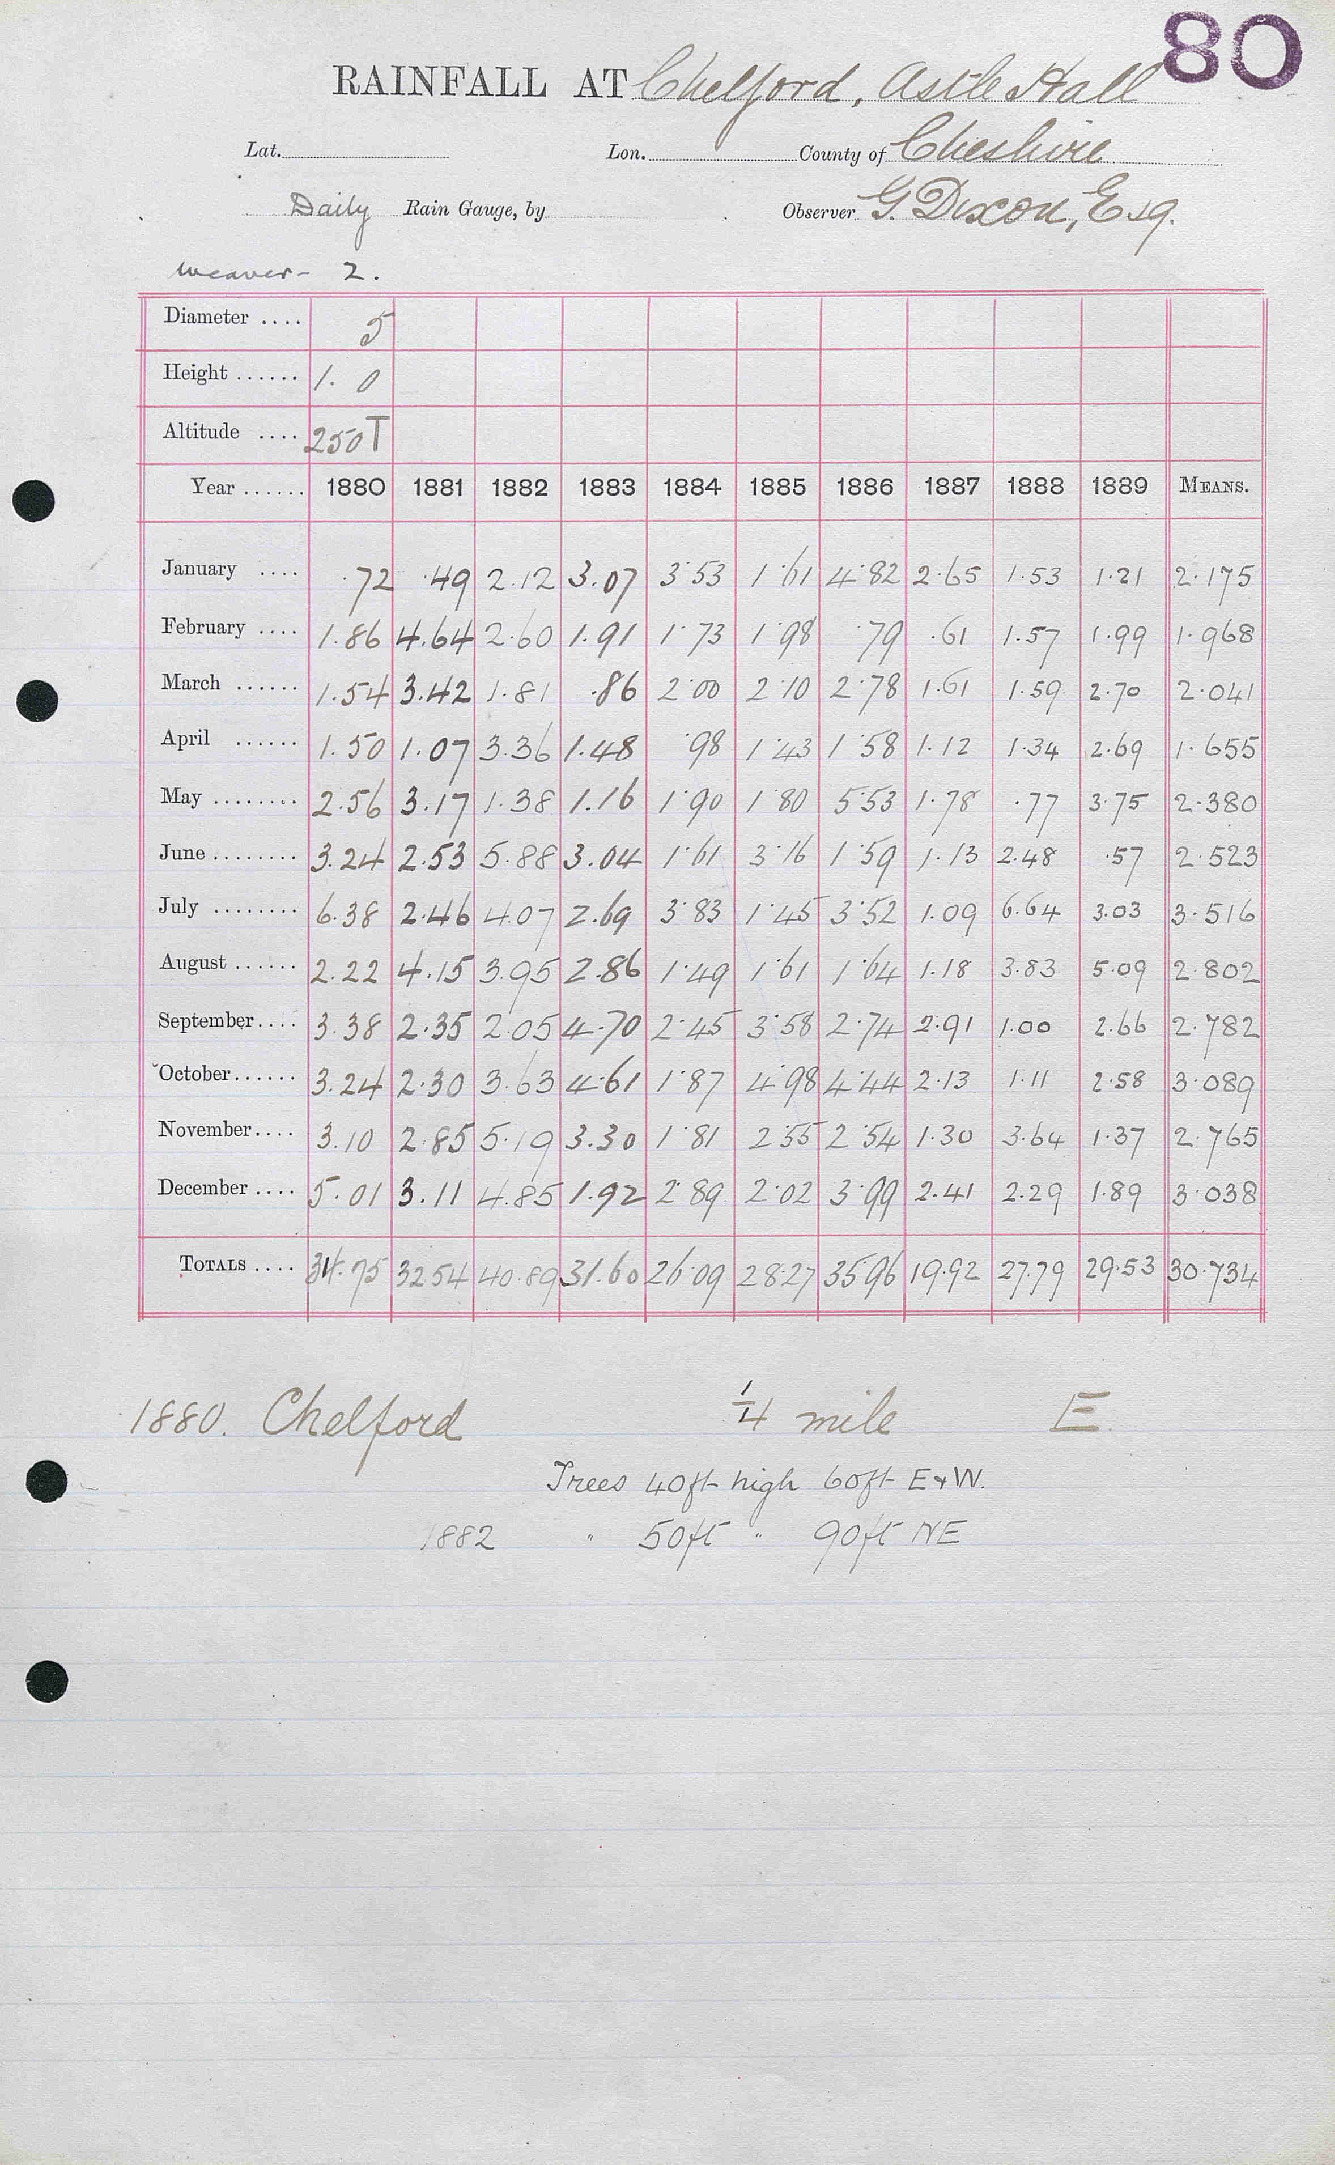 80
RAINFALL AT Chelford, Astle Hall
Lat. Lon. County of Cheshire
Daily Rain Gauge, by Observer G. Dixon, Esq.
Weaver - 2.
Diameter .... 5
Height ...... 1. 0
Altitude .... 250T
Year ...... 1880 1881 1882 1883 1884 1885 1886 1887 1888 1889 MEANS.
January .... .72 .49 2.12 3.07 3.53 1.61 4.82 2.65 1.53 1.21 2.175
February .... 1.86 4.64 2.60 1.91 1.73 1.98 .79 .61 1.57 1.99 1.968
March ...... 1.54 3.42 1.81 .86 2.00 2.10 2.78 1.61 1.59 2.70 2.041
April ...... 1.50 1.07 3.36 1.48 .98 1.43 1.58 1.12 1.34 2.69 1.655
May ........ 2.56 3.17 1.38 1.16 1.90 1.80 5.53 1.78 .77 3.75 2.380
June ........ 3.24 2.53 5.88 3.04 1.61 3.16 1.59 1.13 2.48 .57 2.523
July ........ 6.38 2.46 4.07 2.69 3.83 1.45 3.52 1.09 6.64 3.03 3.516
August ...... 2.22 4.15 3.95 2.86 1.49 1.61 1.64 1.18 3.83 5.09 2.802
September.... 3.38 2.35 2.05 4.70 2.45 3.58 2.74 2.91 1.00 2.66 2.782
October...... 3.24 2.30 3.63 4.61 1.87 4.98 4.44 2.13 1.11 2.58 3.089
November.... 3.10 2.85 5.19 3.30 1.81 2.55 2.54 1.30 3.64 1.37 2.765
December .... 5.01 3.11 4.85 1.92 2.89 2.02 3.99 2.41 2.29 1.89 3.038
TOTALS .... 34.75 32.54 40.89 31.60 26.09 28.27 35.96 19.92 27.79 29.53 30.734
1880. Chelford 1/4 mile E.
Trees 40ft high 60ft E & W.
1882 " 50ft " 90ft NE